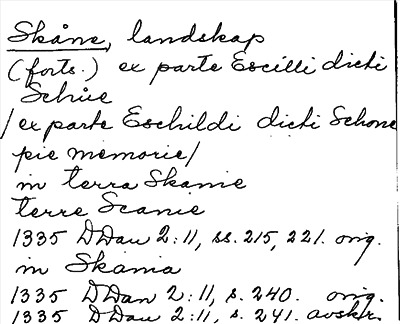 Skåne, landskap
(forts.) ex parte Escilli dicti
Schúe
/ex parte Eschildi dicti Schone
pie memorie/
in terra Skanie
terre Scanie
1335 DDan 2:11, ss. 215, 221. orig.
in Skania
1335 DDan 2:11, s. 240. orig.
1335 DDan 2:11, s. 241. avskr.